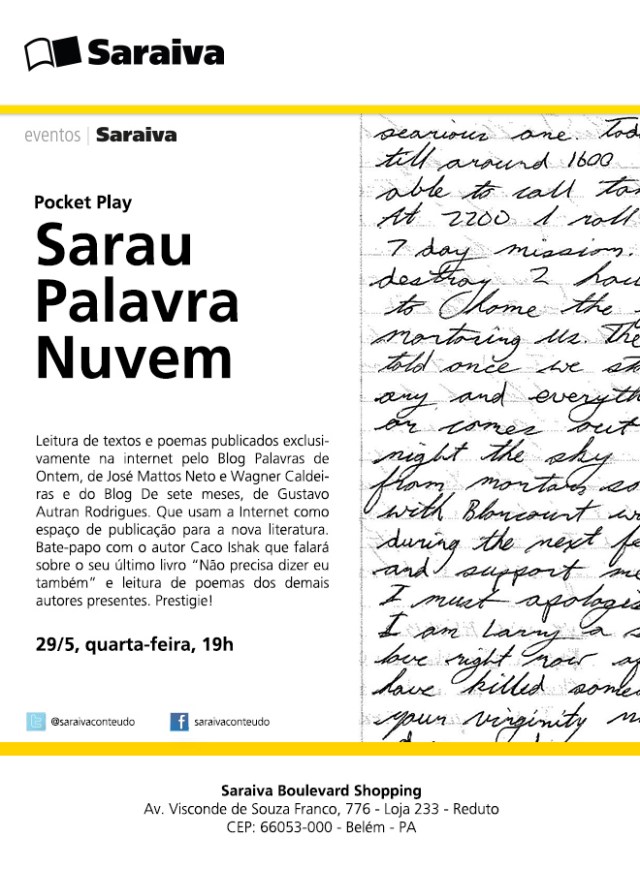 Saraiva
eventos | Saraiva
Pocket Play
Sarau
Palavra
Nuvem
Leitura de textos e poemas publicados exclusi-
vamente na internet pelo Blog Palavras de
Ontem, de José Mattos Neto e Wagner Caldei-
ras e do Blog De sete meses, de Gustavo
Autran Rodrigues. Que usam a Internet como
espaço de publicação para a nova literatura.
Bate-papo com o autor Caco Ishak que falará
sobre o seu último livro “Não precisa dizer eu
também” e leitura de poemas dos demais
autores presentes. Prestigie!
29/5, quarta-feira, 19h
@saraivaconteudo
saraivaconteudo
searious one. Tod
till around 1600
able to call
At 2200 I roll
7 day mission.
destroy 2
to home the
mortoring us. The
told once we
any and everyth
or comes out
night the sky
from mortars so
with Blancourt
during the next
and support
I must apologi
I am Larry a
love right now
have killed some
your virginity
Saraiva Boulevard Shopping
Av. Visconde de Souza Franco, 776 - Loja 233 - Reduto
CEP: 66053-000 - Belém - PA